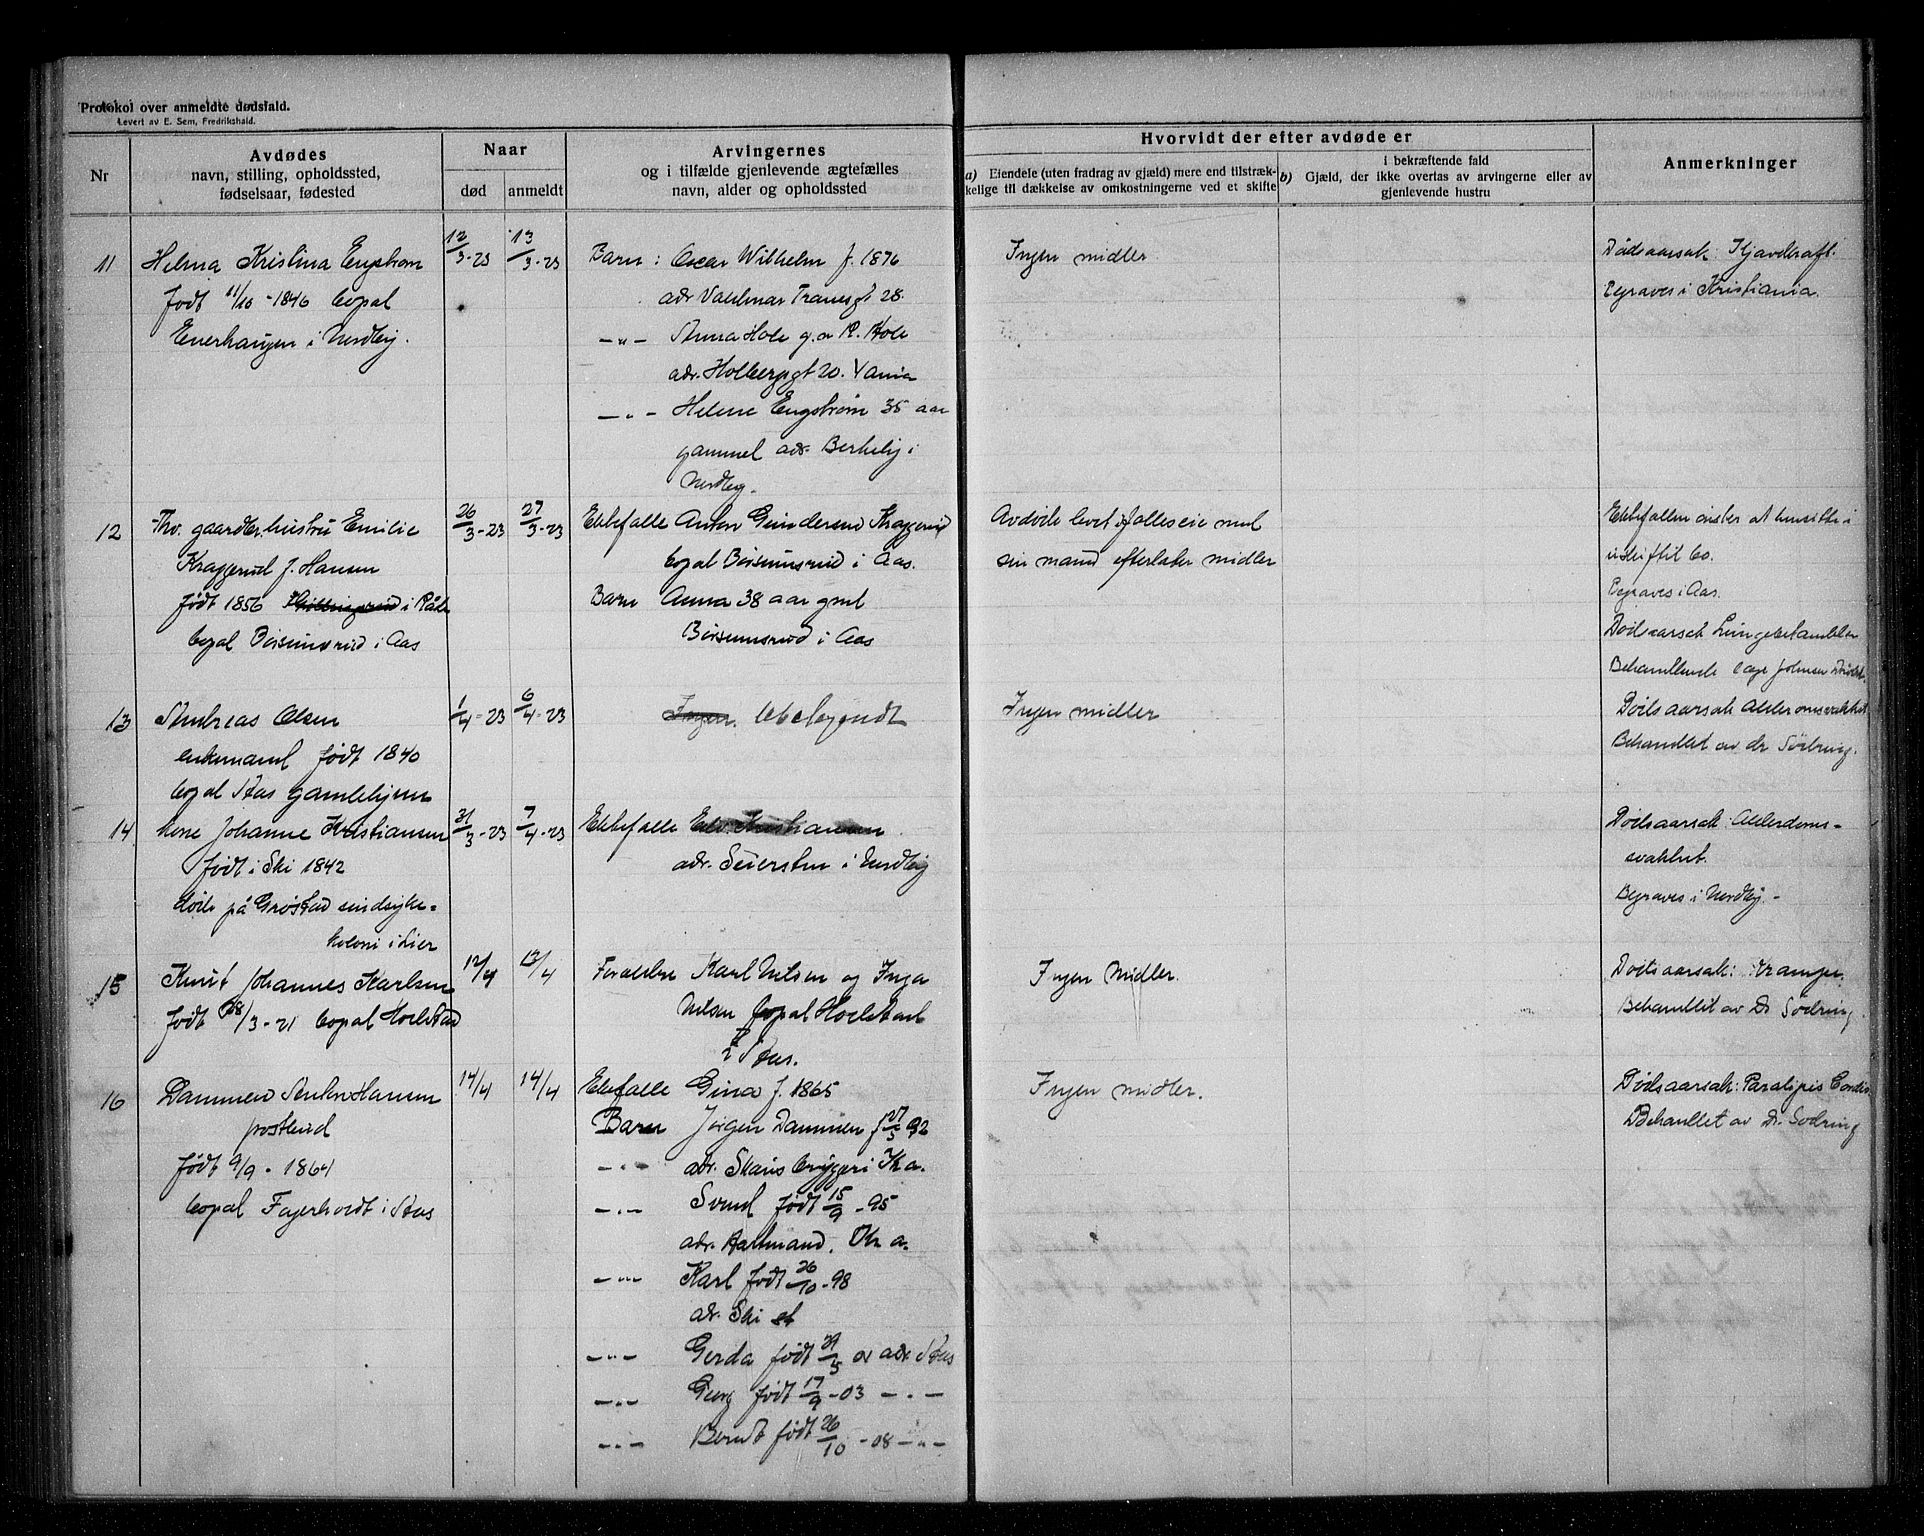 Protokol over anmeldte dødsfald.
Levert av E. Sem, Fredrikshald.
Nr
Avdødes
navn, stilling, opholdssted,
fødselsaar, fødested
Naar
død
anmeldt
Arvingernes
og i tilfælde gjenlevende ægtefælles
navn, alder og opholdssted
Hvorvidt der efter avdøde er
a) Eiendele (uten fradrag av gjæld) mere end tilstræk-
kelige til dækkelse av omkostningerne ved et skifte
i bekræftende fald
b) Gjæld, der ikke overtas av arvingerne eller av
gjenlevende hustru
Anmerkninger
11
Helma Kristina Engstrøm
født 11/10 - 1846 bopal
Enerhaugen i Nordby.
12/3-23
13/3-23
Barn: Oscar Wilhelm f. 1876
adr Valdmar Tranesgt 28.
—"— Anna Hole g.a R. Hole
adr. Holbergsgt 20. Xania
—"— Helene Engstrøm 35 aar
gammel adr. Berkeby i
Nordby.
Ingen midler
Dødsaarsak:
Begraves i Kristiania.
12
Thv. gaardbr. hustru Emilie
Kraggerud f. Hansen
født 1856 i Råde
bopal Børsumsrud i Aas
26/3-23
27/3-23
Ektefælle Anton Gundersen Kraggerud
bopal Børsumsrud i Aas.
Barn Anna 38 aar gml
Børsumsrud i Aas
Avdøde levet i fælleseie med
sin mand efterlater midler
Ektefællen ønsker at hensitte i
uskiftet bo.
Begraves i Aas.
Dødsaarsak
Behandlende læge Johnsen
13
Andreas Olsen
enkemand født 1840
bopal Aas gamlehjem
1/4-23
6/4-23
Ingen. Ubekjendt
Ingen midler
Dødsaarsak Alderdomsvakhet
Behandlet av dr Sødring.
14
Lene Johanne Kristiansen
født i Ski 1842
døde på Grøstad sindsyke-
koloni i Lier
31/3-23
7/4-23
Ektefælle Edv. Kristiansen
adr. Seiersten i Nordby
Dødsaarsak: Alderdoms-
svakhet.
Begraves i Nordby. -
15
Knut Johannes Karlsen
født 28/3-21 bopal Holstad
12/4
13/4
Forældre Karl Nilsen og Inga
Nilsen bopal Holstad
i Aas.
Ingen Midler.
Dødsaarsak: Krampe.
Behandlet av Dr Sødring
16
Dammen Anton Hansen
postbud
født 9/9 - 1864
bopal Fagerholdt i Aas
14/4
14/4
Ektefælle Gina f. 1865
Barn Jørgen Dammen f 27/5 92
—"— adr. Skøis bryggeri Kr a.
—"— Svend født 15/9 - 95
adr. Hartmand. Kr a.
—"— Karl født 26/10 - 98
adr. Ski st
—"— Gerda født 31/5 01 adr Aas
—"— Georg født 17/9 - 03 —"—
—"— Berndt født 26/10 - 08 —"—
Ingen midler.
Dødsaarsak: Paralysis Cordis
Behandlet av Dr. Sødring